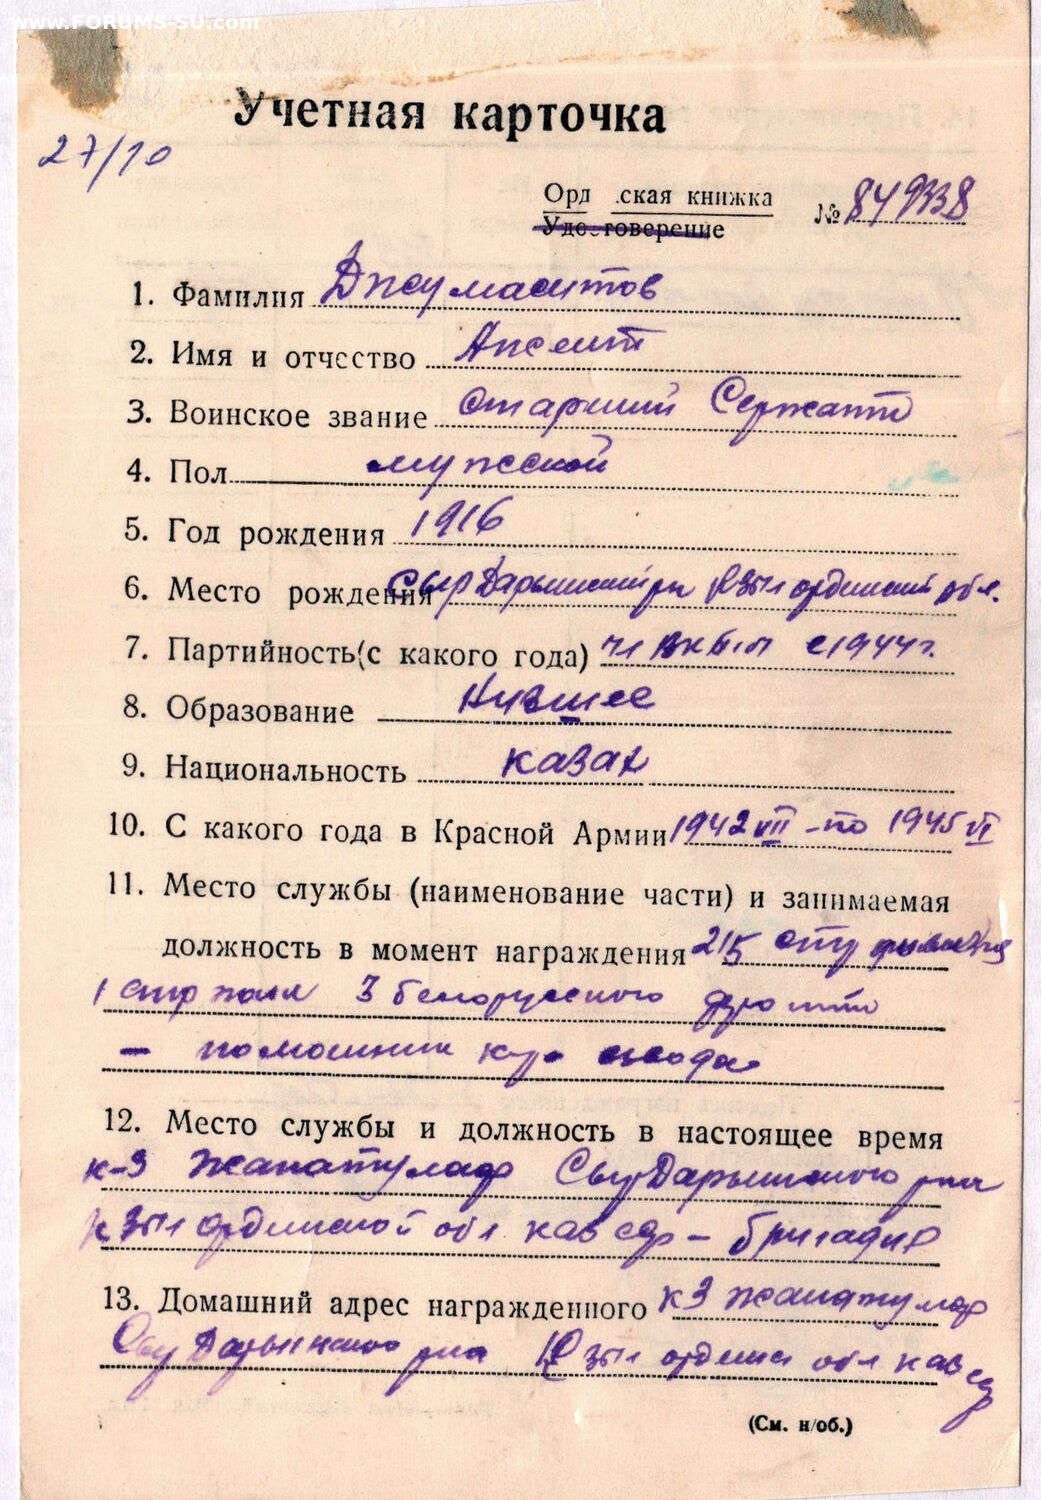 www.FORUMS-SU.com
Учетная карточка
27/10
Орд ская книжка
Удостоверение
№ 849338
1. Фамилия Джумаситов
2. Имя и отчество
3. Воинское звание Старший Сержант
4. Пол мужской
5. Год рождения 1916
6. Место рождения СырДарьинский рн Кзыл ординский обл.
7. Партийность (с какого года) чл ВКБ.П с 1944 г.
8. Образование Низшее
9. Национальность казах
10. С какого года в Красной Армии 1942 VII - по 1945 VI
11. Место службы (наименование части) и занимаемая
должность в момент награждения 215 дивизия
1 стр 3 белорусского фронта
- помошник взвода
12. Место службы и должность в настоящее время
к-з Жанатурмыс СырДарьинского рна
Кзыл ординской обл каз сср - бригадир
13. Домашний адрес награжденного к з Жанатурмыс
СырДарьинского рна Кзыл ординс обл каз сср
(См. н/об.)